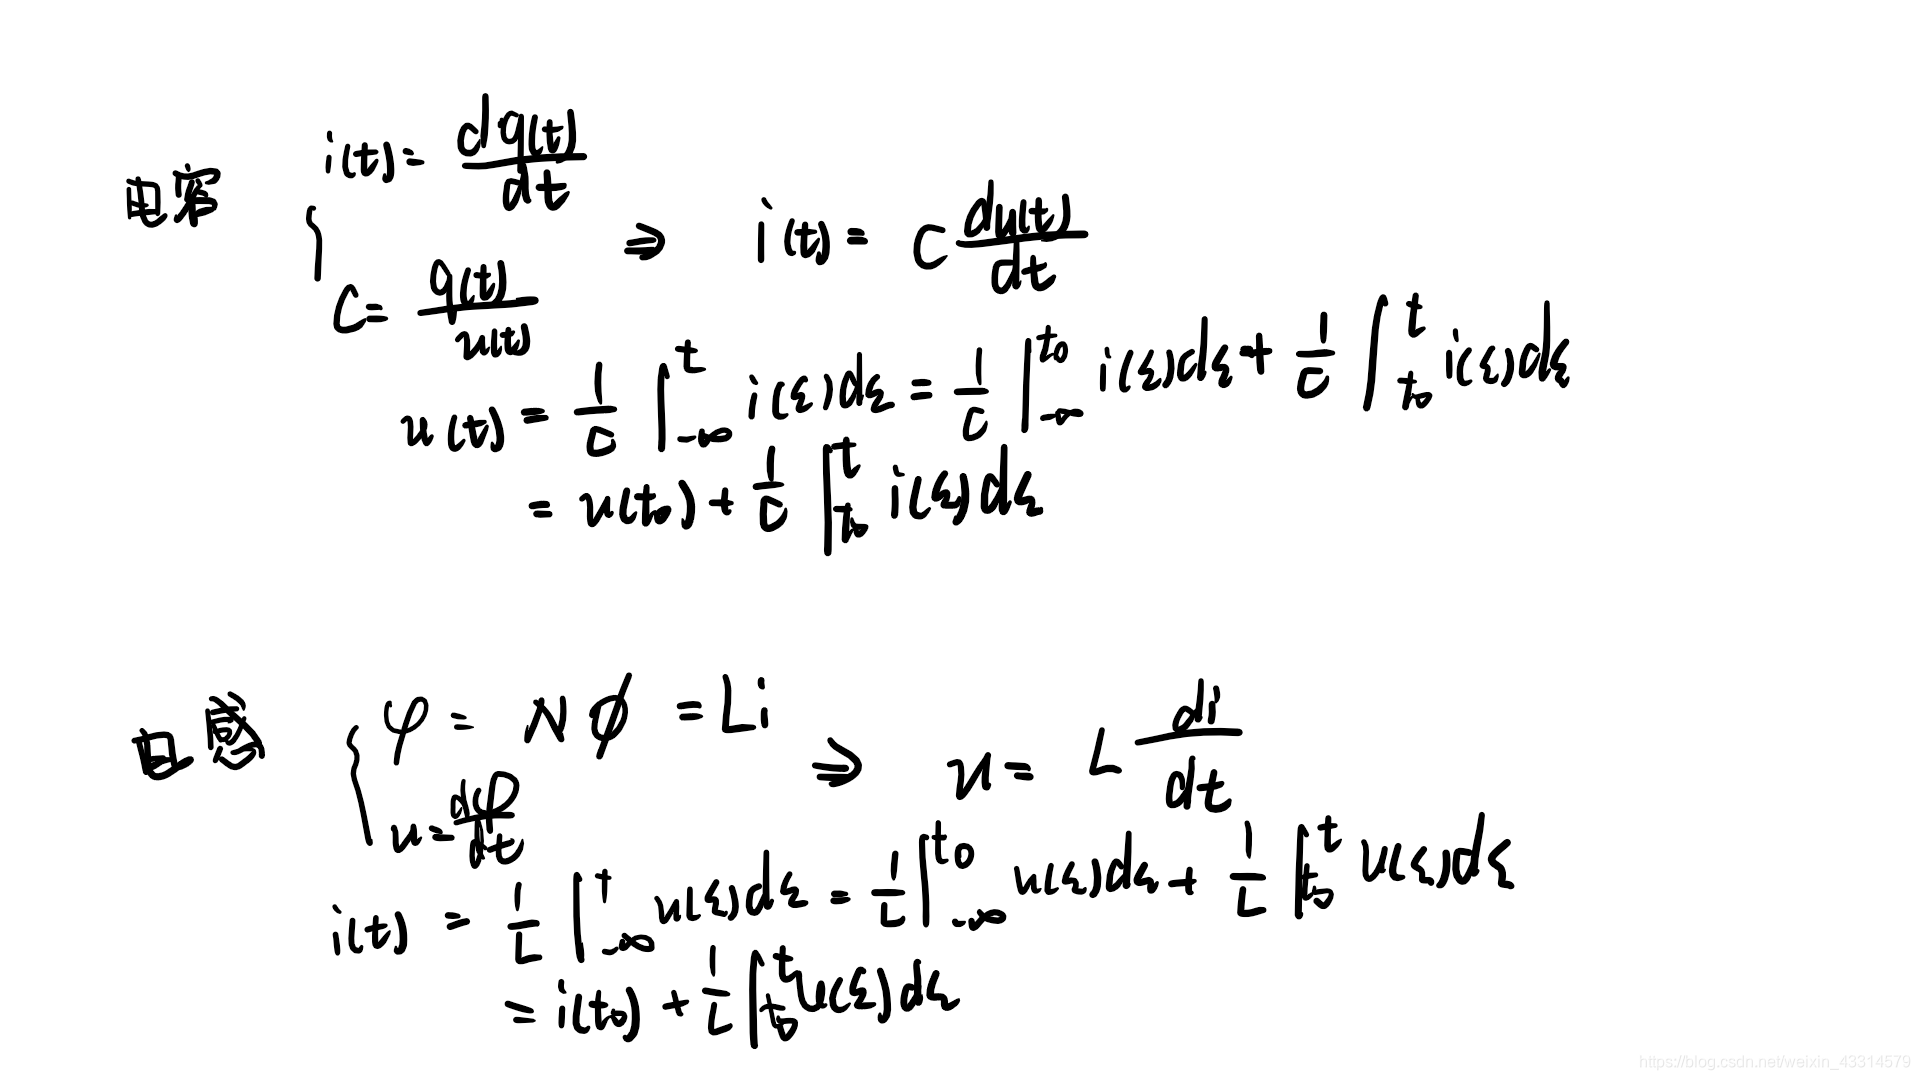 电容
i(t) = dq(t)/dt
C = q(t)/u(t)
⇒ i(t) = C du(t)/dt
u(t) = 1/C ∫_{-∞}^{t} i(ξ)dξ = 1/C ∫_{-∞}^{t₀} i(ξ)dξ + 1/C ∫_{t₀}^{t} i(ξ)dξ
= u(t₀) + 1/C ∫_{t₀}^{t} i(ξ)dξ
电感
φ = Nϕ = Li
u = dφ/dt
⇒ u = L di/dt
i(t) = 1/L ∫_{-∞}^{t} u(ξ)dξ = 1/L ∫_{-∞}^{t₀} u(ξ)dξ + 1/L ∫_{t₀}^{t} u(ξ)dξ
= i(t₀) + 1/L ∫_{t₀}^{t} u(ξ)dξ
https://blog.csdn.net/weixin_43314579